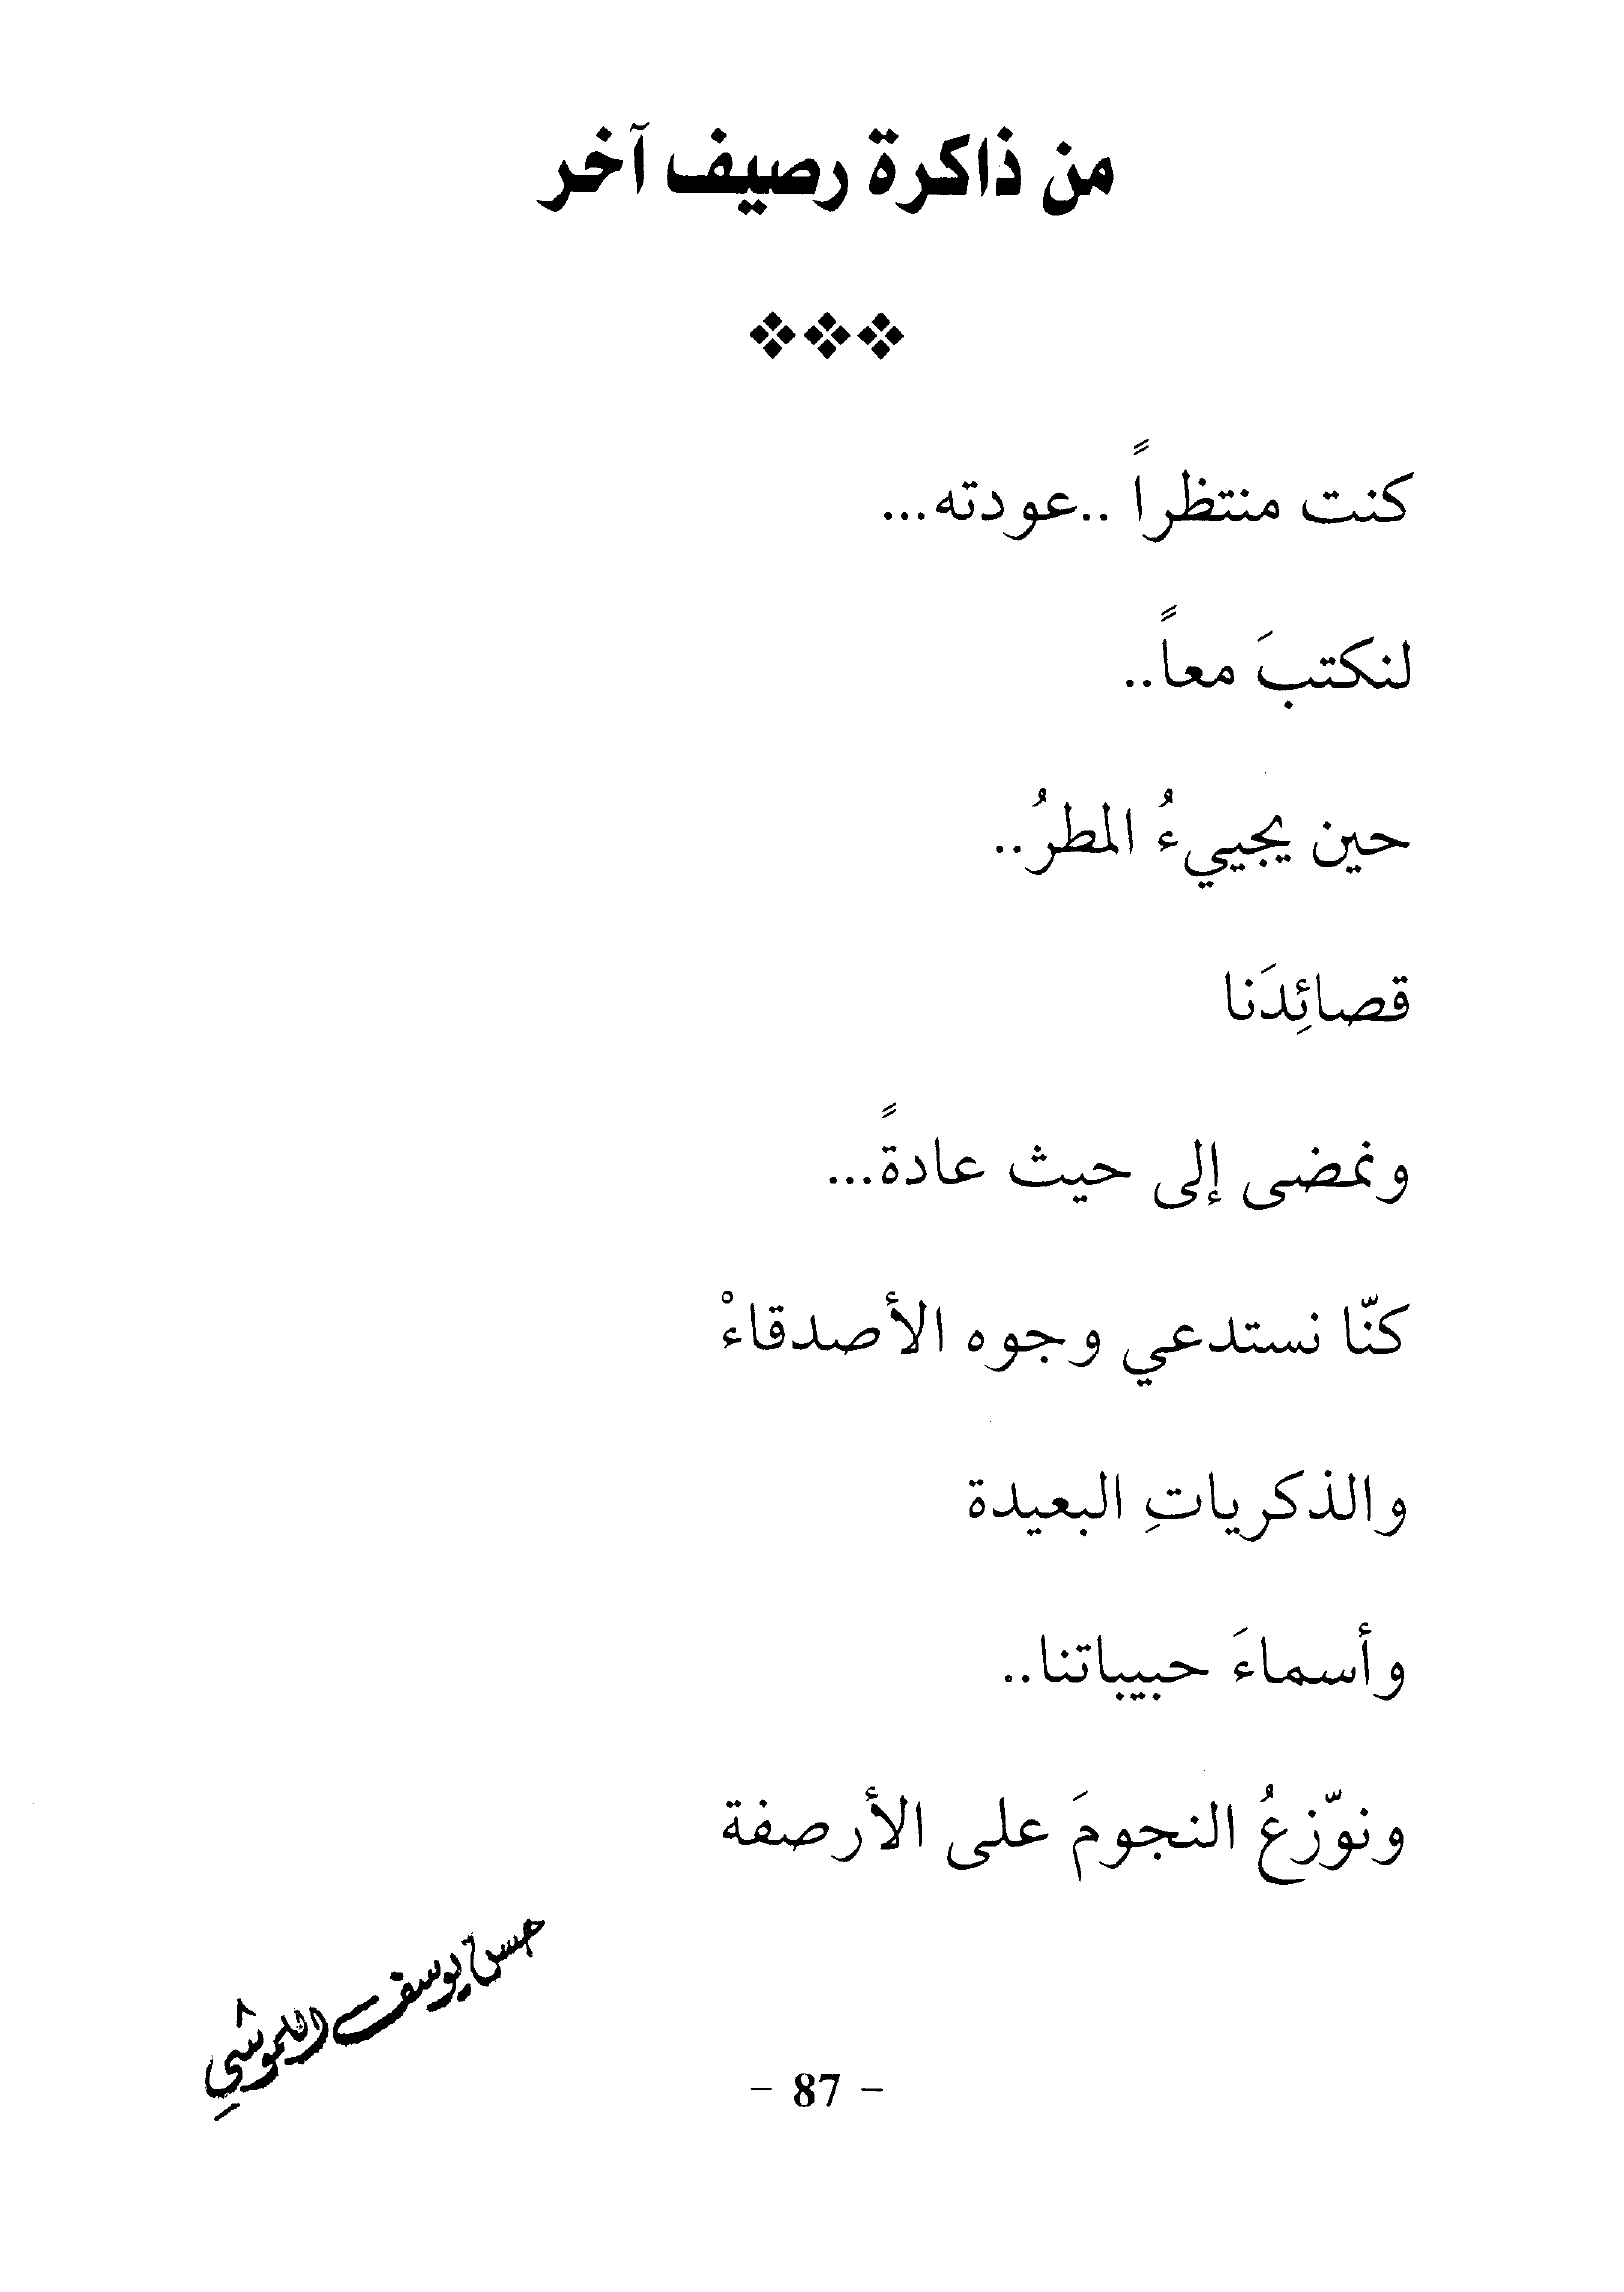 من ذاكرة رصيف آخر
كنت منتظراً ..عودته...
لنكتبَ معاً..
حين يجييءُ المطرُ..
قصائِدَنا
ونمضى إلى حيث عادةً...
كنّا نستدعي وجوه الأصدقاءْ
والذكرياتِ البعيدة
وأسماءَ حبيباتنا..
ونوّزعُ النجومَ على الأرصفة
حسن يوسف اللموشي
- 87 -